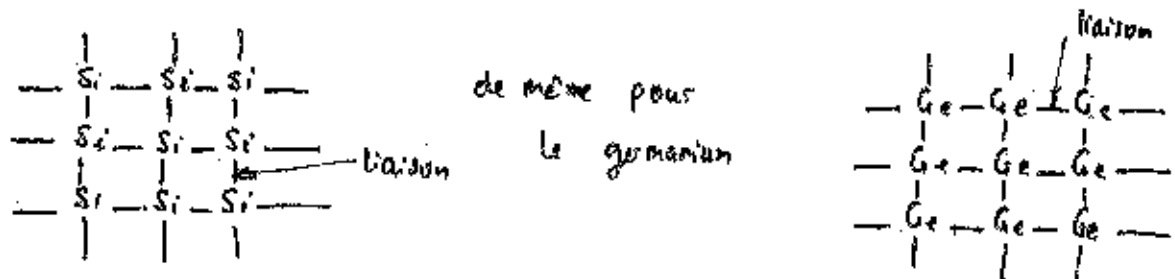 Si Si Si
Si Si Si
liaison
Si Si Si
de même pour
le germanium
liaison
Ge Ge Ge
Ge Ge Ge
Ge Ge Ge